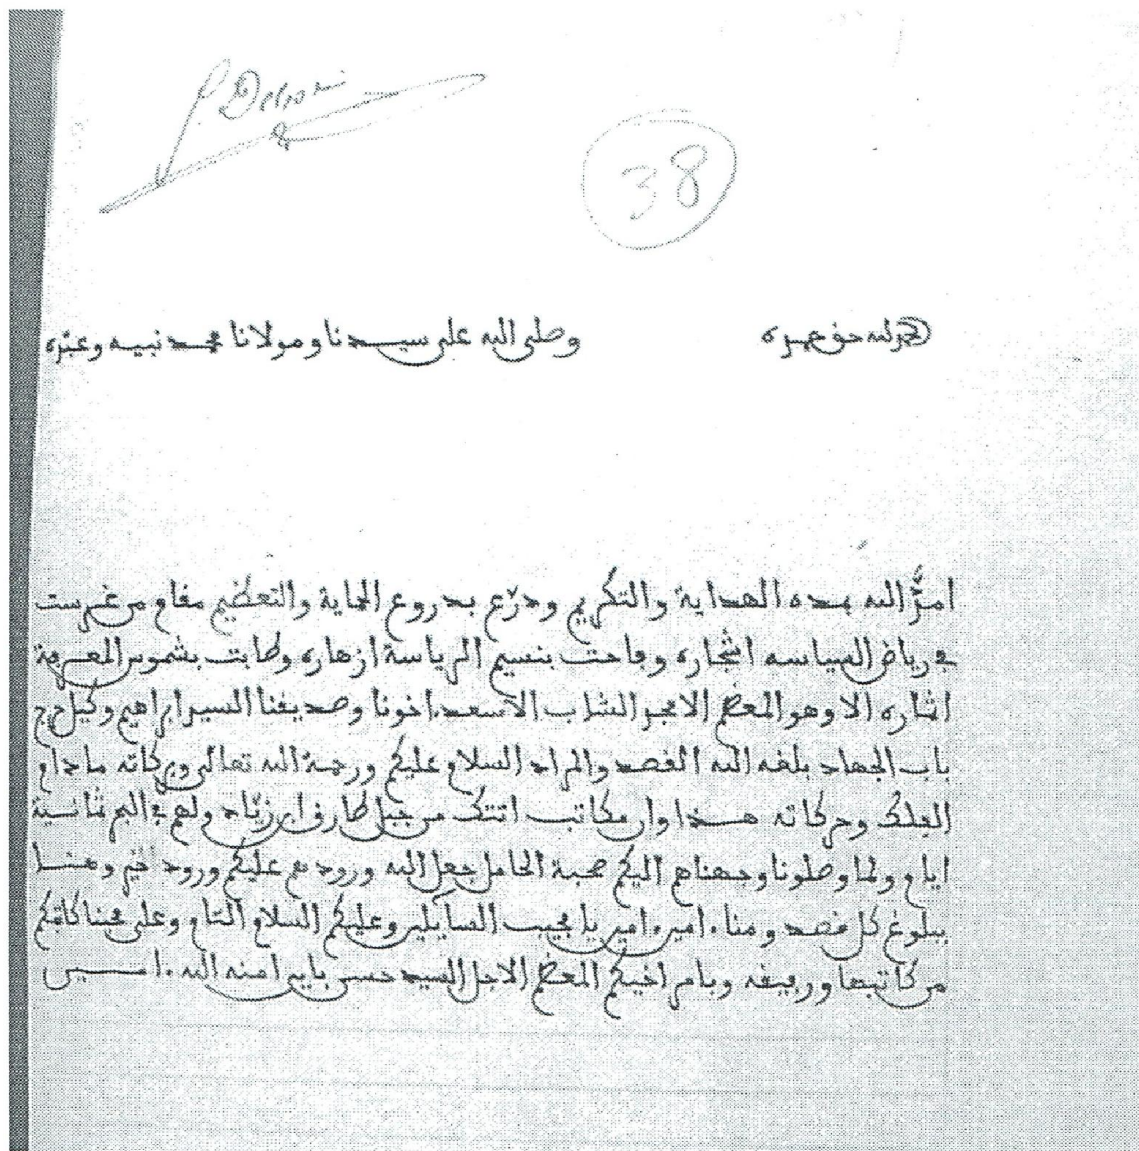 38
الحمد لله حق حمده وصلى الله على سيدنا ومولانا محمد نبيه وعبده
امدّ الله بمدد الهداية والتكريم ودرّع بدروع الحماية والتعظيم مقام من غرست
في رياض السياسه اشجاره وفاحت بنسيم الرياسة ازهاره وطابت بشموس المعرفة
اثماره الا وهو المعظم الامجد الشاب الاسعد اخونا وصديقنا السيد ابراهيم وكيل حرج
باب الجهاد بلغه الله القصد والمراد السلام عليكم ورحمة الله تعالى وبركاته مادام
الفلك وحركاته هذا وان مكاتب اتتك من جبل طارق ابن زياد ولهم في اليم ثمانية
ايام ولما وصلونا وجهناهم اليكم صحبة الحامل جعل الله ورودهم عليكم ورود خير وهنا
ببلوغ كل قصد ومنا. امين. امين يا مجيب السايلين وعليكم السلام التام وعلى محبنا كاتبكم
من كاتبها ورفيقه وبامر اخيكم المعظم الاجل السيد حسن باي امنه الله. امين